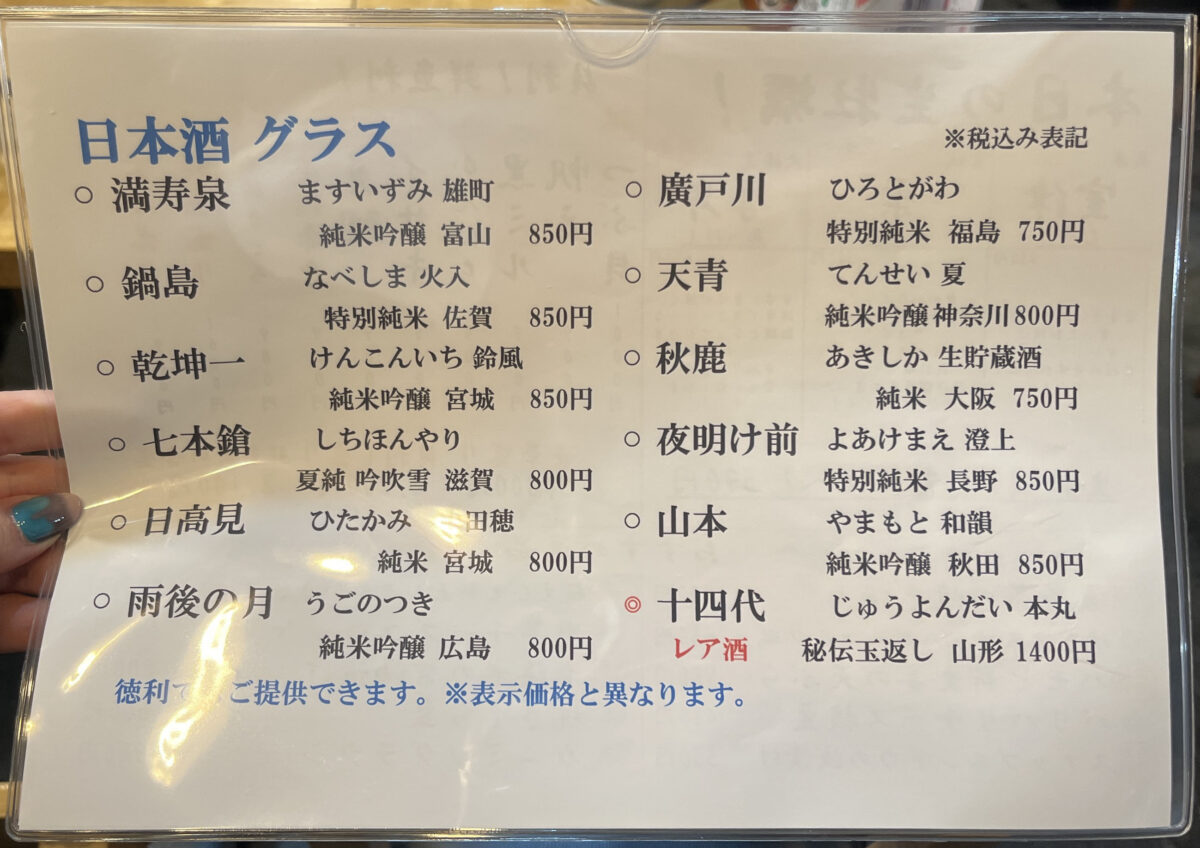 日本酒 グラス
※税込み表記
○ 満寿泉 ますいずみ 雄町
純米吟醸 富山 850円
○ 鍋島 なべしま 火入
特別純米 佐賀 850円
○ 乾坤一 けんこんいち 鈴風
純米吟醸 宮城 850円
○ 七本鎗 しちほんやり
夏純 吟吹雪 滋賀 800円
○ 日高見 ひたかみ 田穂
純米 宮城 800円
○ 雨後の月 うごのつき
純米吟醸 広島 800円
○ 廣戸川 ひろとがわ
特別純米 福島 750円
○ 天青 てんせい 夏
純米吟醸 神奈川 800円
○ 秋鹿 あきしか 生貯蔵酒
純米 大阪 750円
○ 夜明け前 よあけまえ 澄上
特別純米 長野 850円
○ 山本 やまもと 和韻
純米吟醸 秋田 850円
◎ 十四代 じゅうよんだい 本丸
レア酒 秘伝玉返し 山形 1400円
徳利で ご提供できます。※表示価格と異なります。